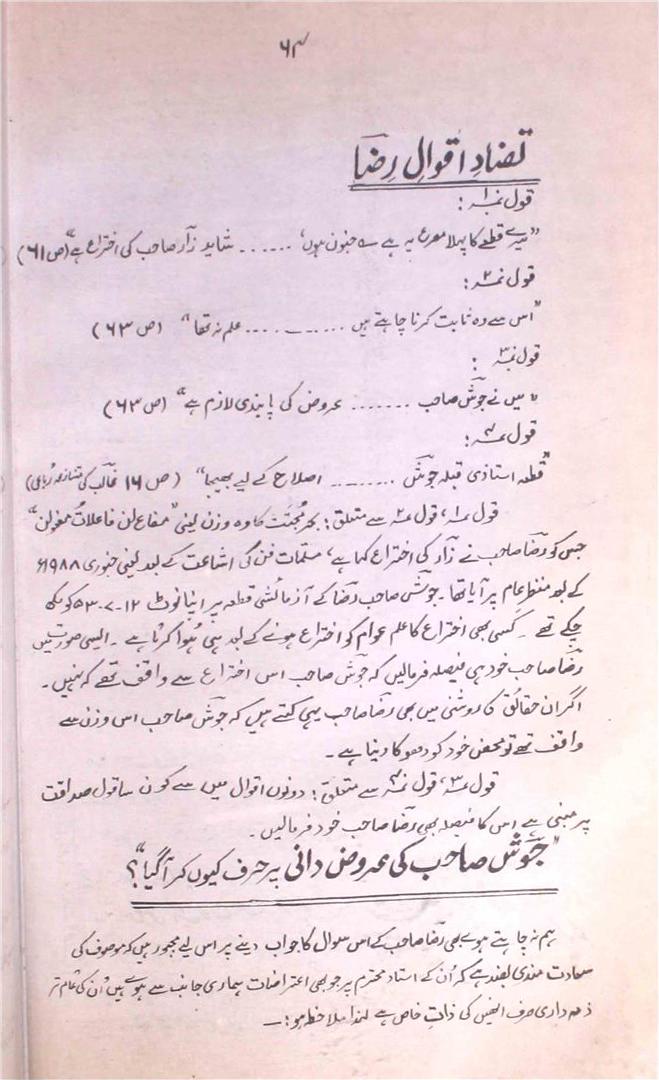 ۶۴
تضادِ اقوالِ رِضا
قول نمبر۱ :
”میرے قطعے کا پہلا مصرع یہ ہے ؎ جنون ہوں، ...... شاید زآر صاحب کی اختراع ہے“ (ص ۶۱)
قول نمبر۲ :
”اس سے وہ ثابت کرنا چاہتے ہیں ........ علم نہ تھا“ (ص ۶۳)
قول نمبر۳ :
”میں نے جوشؔ صاحب ....... عروض کی پابندی لازم ہے“ (ص ۶۳)
قول نمبر۴ :
”قطعہ استاذی قبلہ جوشؔ ........ اصلاح کے لیے بھیجا“ (ص ۱۶ غالب کی متنازعہ رباعی)
قول نمبر۱، قول نمبر۲ سے متعلق : بحر مُجتث کا وہ وزن یعنی ”مفاعلن فاعلات مفعولن“
جس کو رضاؔ صاحب نے زآر کی اختراع کہا ہے، مسلمات فن کی اشاعت کے بعد یعنی جنوری ۱۹۸۸ء
کے بعد منظرِ عام پر آیا تھا ۔ جوشؔ صاحب رضاؔ کے آزمائشی قطعہ پر اپنا نوٹ ۱۲-۷-۵۳ کو لکھ
چکے تھے ۔ کسی بھی اختراع کا علم عوام کو اختراع ہونے کے بعد ہی ہُوا کرتا ہے ۔ ایسی صورت میں
رضاؔ صاحب خود ہی فیصلہ فرمالیں کہ جوشؔ صاحب اس اختراع سے واقف تھے کہ نہیں ۔
اگر ان حقائق کی روشنی میں بھی رضاؔ صاحب یہی کہتے ہیں کہ جوشؔ صاحب اس وزن سے
واقف تھے تو محض خود کو دھوکا دینا ہے ۔
قول نمبر۳، قول نمبر۴ سے متعلق : دونوں اقوال میں سے کون سا قول صداقت
پر مبنی ہے اس کا فیصلہ بھی رضاؔ صاحب خود فرمالیں ۔
”جوشؔ صاحب کی عروض دانی پر حرف کیوں کر آگیا“؟
ہم نہ چاہتے ہوے بھی رضاؔ صاحب کے اس سوال کا جواب دینے پر اس لیے مجبور ہیں کہ موصوف کی
سعادت مندی بضد ہے کہ اُن کے استاد محترم پر جو بھی اعتراضات ہماری جانب سے ہوے ہیں اُن کی تمام تر
ذمہ داری صرف انھیں کی ذاتِ خاص ہے لہٰذا ملاحظہ ہو : —